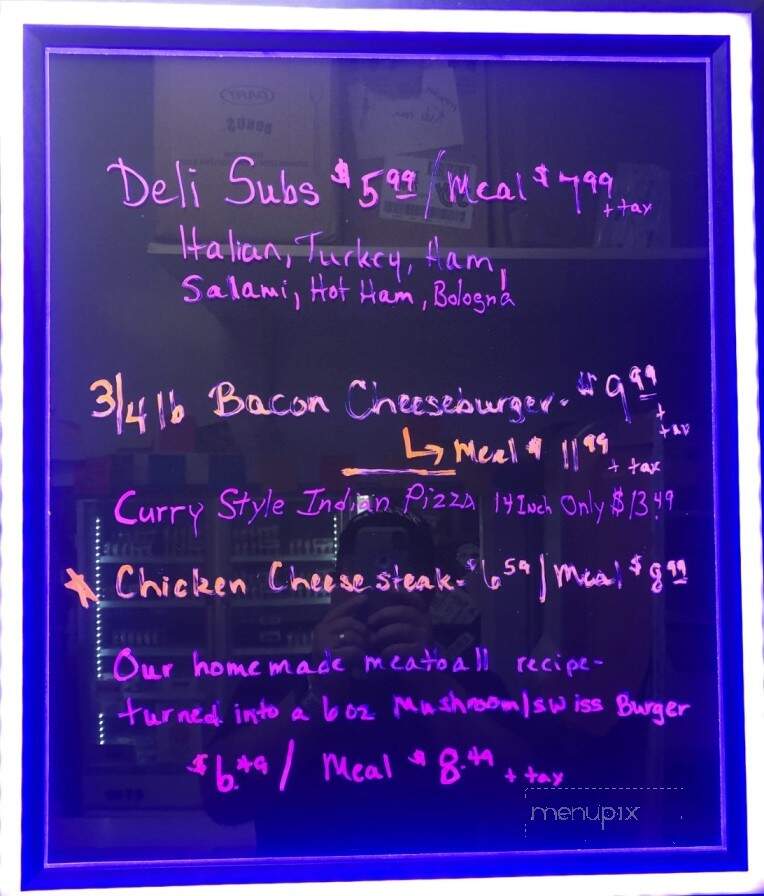 Deli Subs $5.99/Meal $7.99 + tax
Italian, Turkey, Ham,
Salami, Hot Ham, Bologna
3/4 lb Bacon Cheeseburger - $9.99 + tax
↳ Meal $11.99 + tax
Curry Style Indian Pizza 14 Inch Only $13.49
* Chicken Cheesesteak - $6.59/Meal $8.99
Our homemade meatball recipe -
turned into a 6 oz Mushroom/swiss Burger
$6.49/ Meal $8.49 + tax
menupix